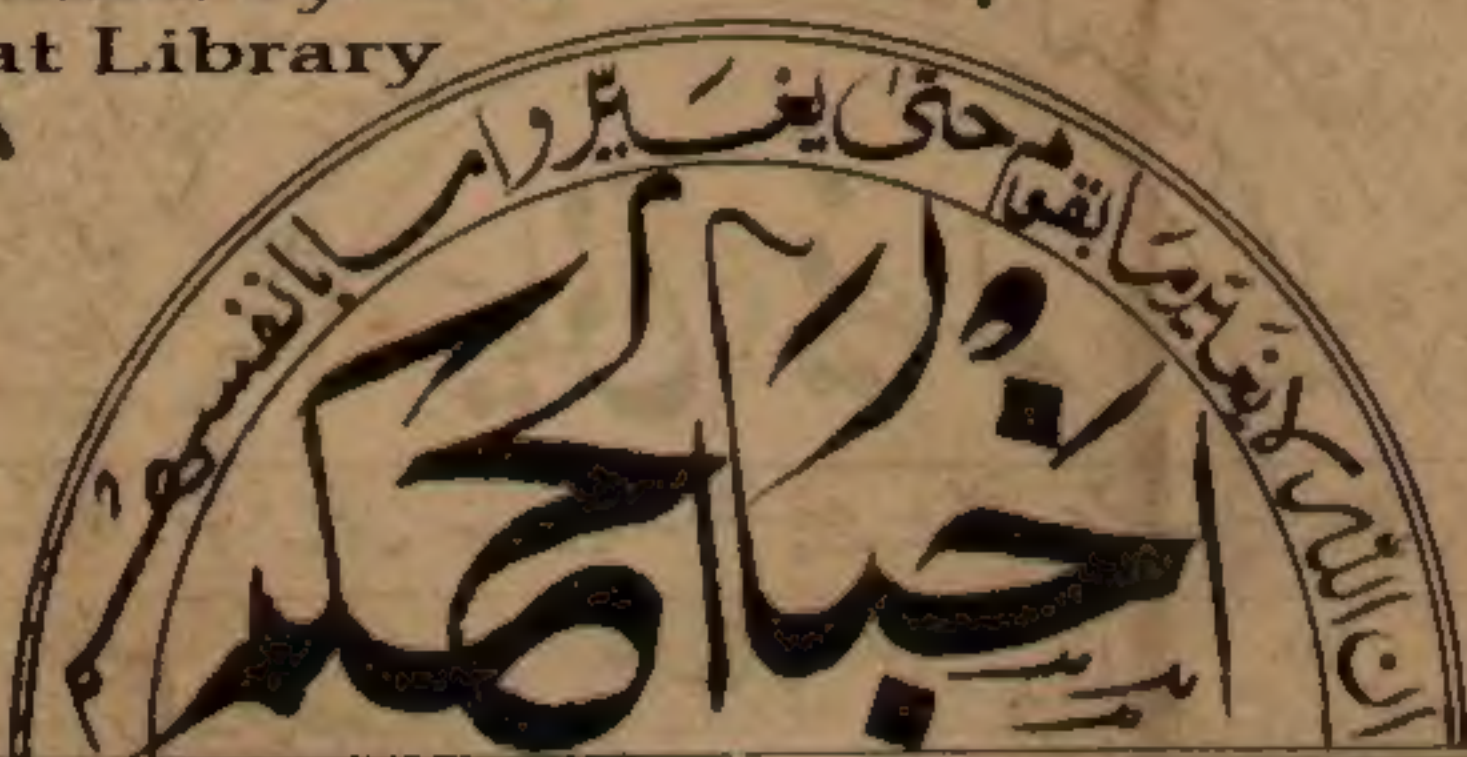 at Library
ان اللہ لا یغَیِّر مَا بقوم حتّیٰ یغَیِّروا ما بانفسھم
اخبار الحکم